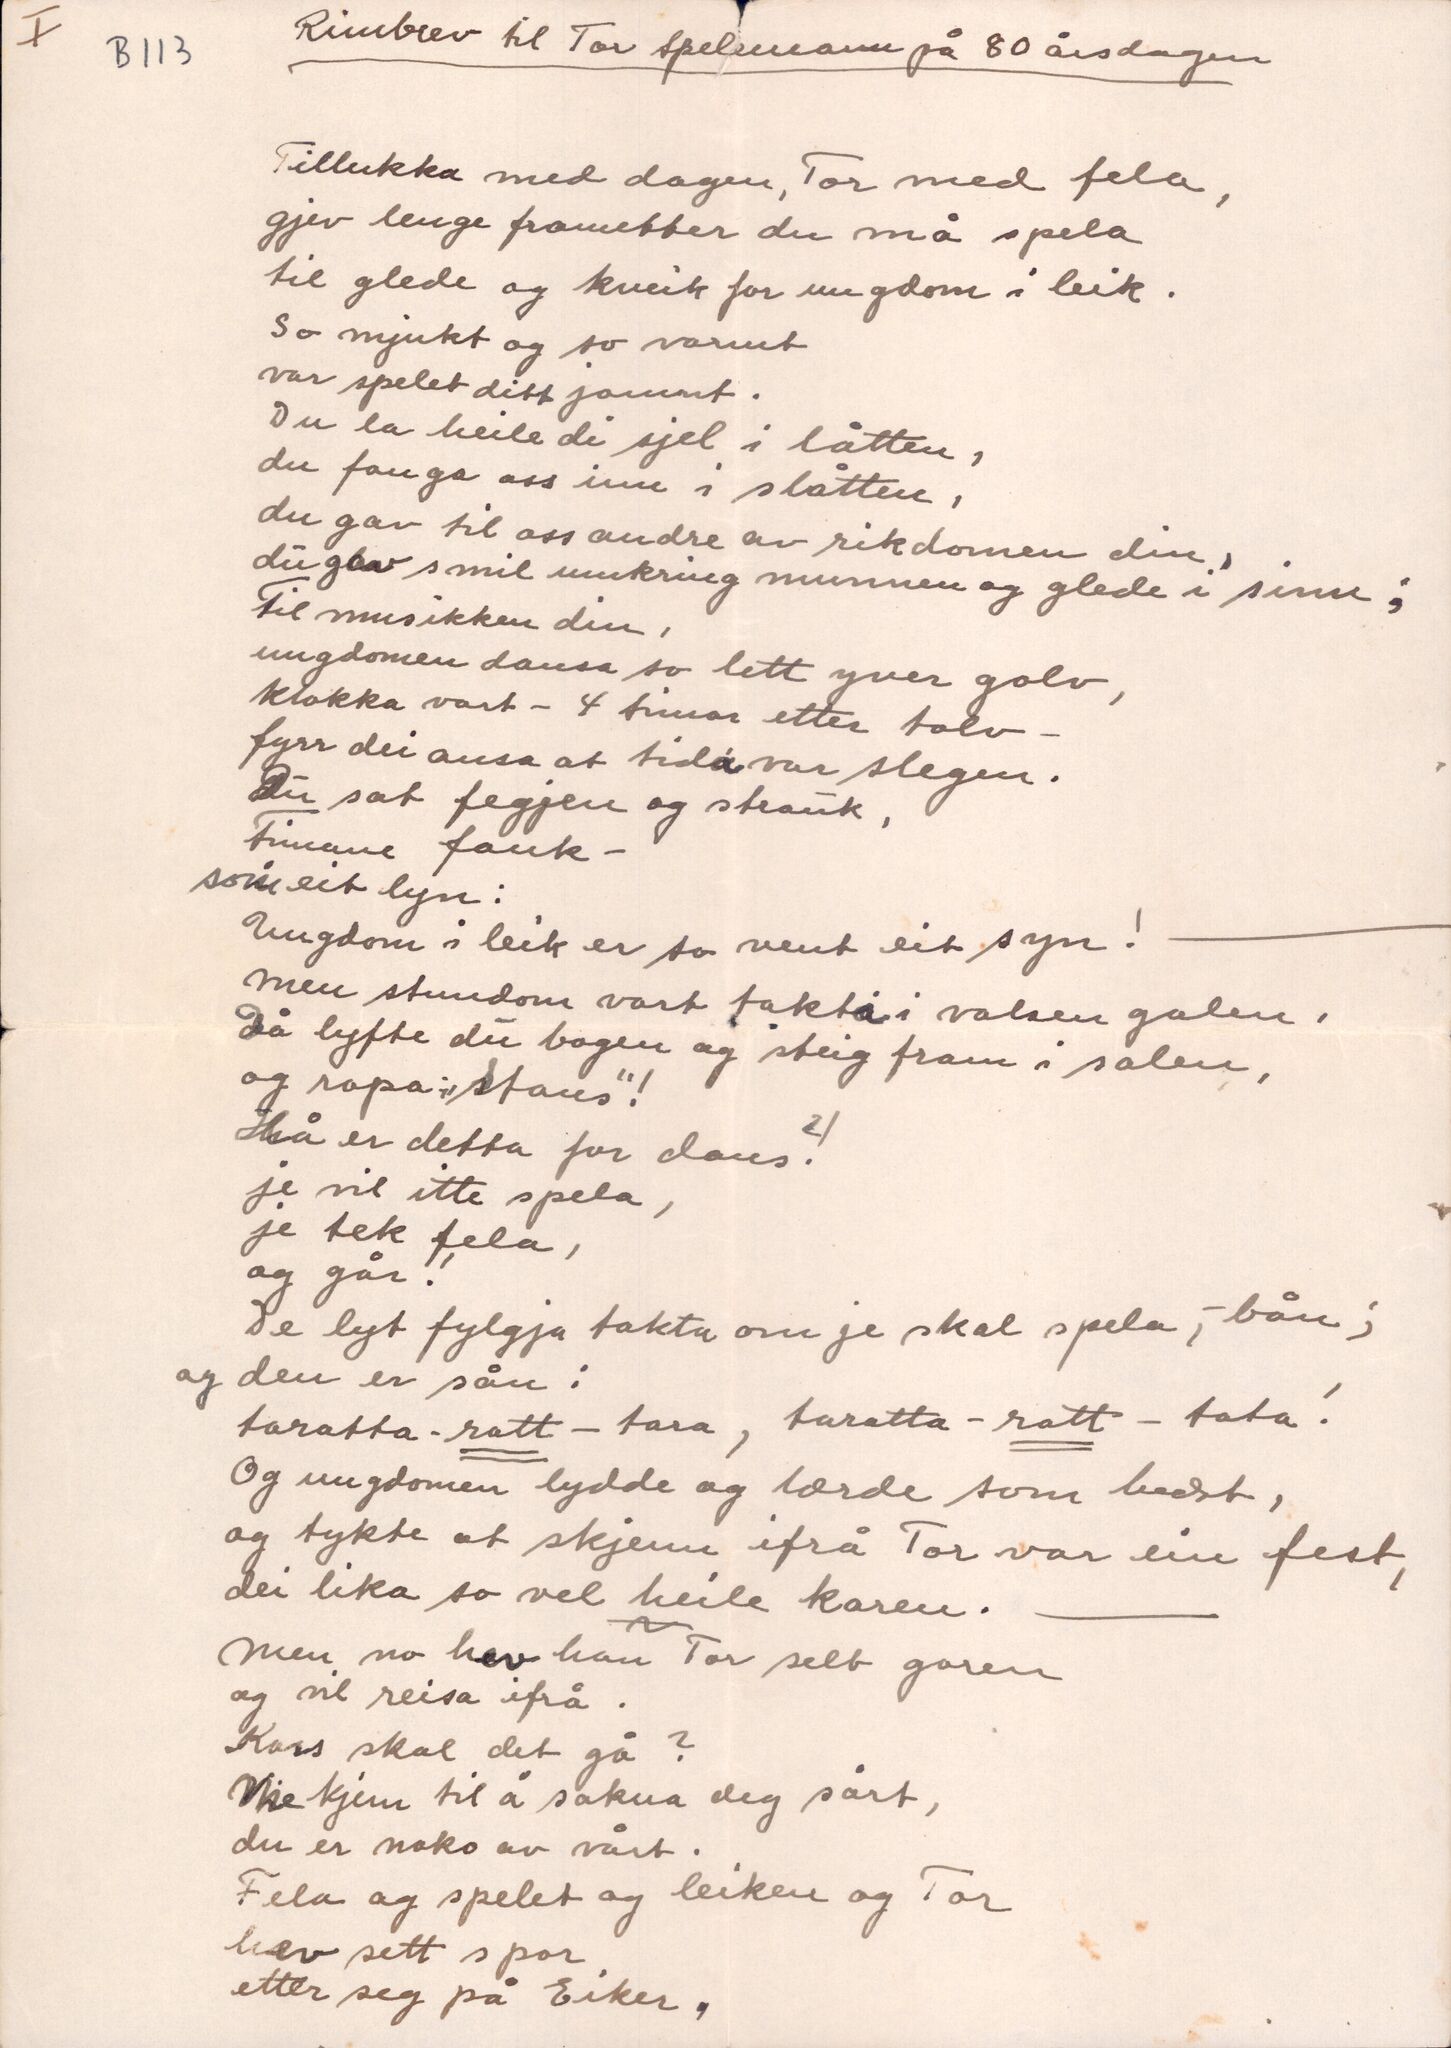 I
B113
Rimbrev til Tor spelemann på 80 årsdagen
Tillukka med dagen, Tor med fela,
gjev lenge frametter du må spela
til glede og kveik for ungdom i leik.
So mjukt og so varmt
var spelet ditt jamnt.
Du la heile di sjel i låtten,
du fanga oss inn i slåtten,
du gav til oss andre av rikdomen din,
du gav smil umkring munnen og glede i sinn;
Til musikken din,
ungdomen dansa so lett yver golv,
klokka vart - 4 timar etter tolv -
fyrr dei ansa at tida var slegen.
Du sat fegjen og strauk,
Timane fauk -
som eit lyn:
Ungdom i leik er so vent eit syn!
men stundom vart takta i valsen galen,
Då lyfte du bogen og steig fram i salen,
og ropa: "stans"!
Hå er detta for dans?!
je vil itte spela,
je tek fela,
og går!
De lyt fylgja takta om je skal spela, - bån;
og den er sån:
taratta - ratt - tara, taratta - ratt - tata!
Og ungdomen lydde og lærde som best,
og tykte at skjenn ifrå Tor var ein fest,
dei lika so vel heile karen.
men no hev han Tor selt garen
og vil reisa ifrå.
Koss skal det gå?
Me kjem til å sakna deg sårt,
du er noko av vårt.
Fela og spelet og leiken og Tor
hev sett spor
etter seg på Eiker.